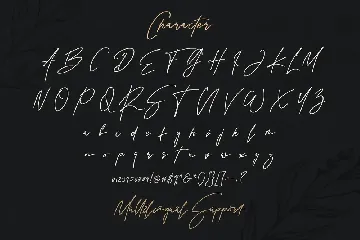 Character
A B C D E F G H I J K L M
N O P Q R S T U V W X Y Z
a b c d e f g h i j k l m
n o p q r s t u v w x y z
Multilingual Support